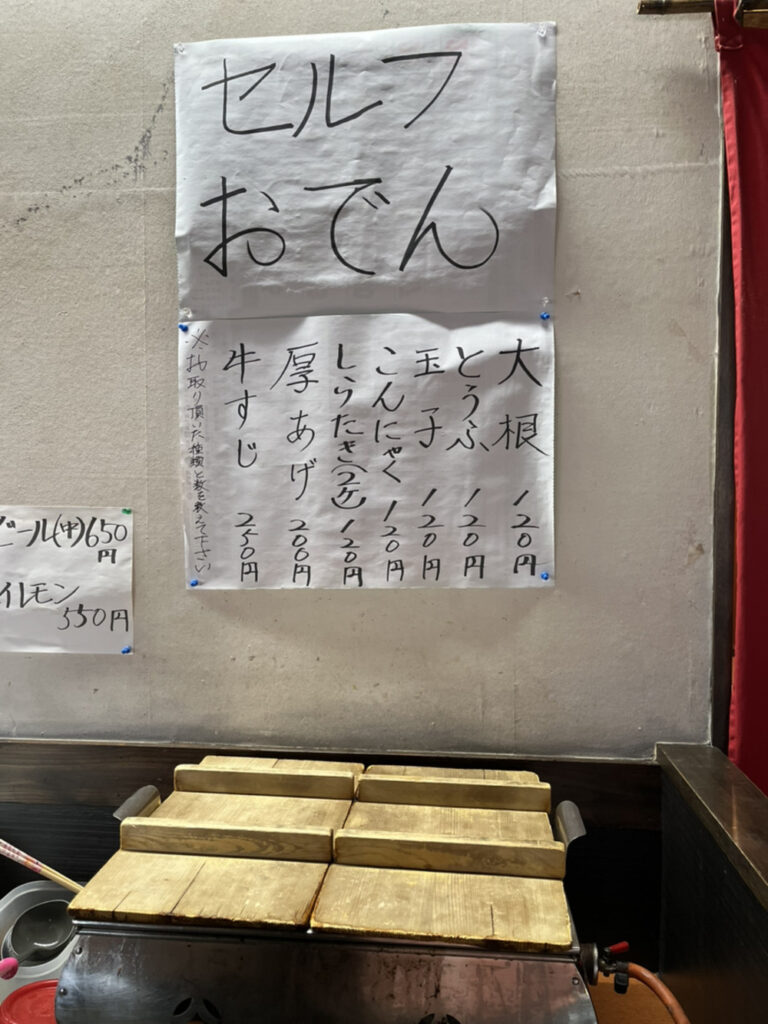 セルフ
おでん
大根 120円
とうふ 120円
玉子 120円
こんにゃく 120円
しらたき(2ケ) 120円
厚あげ 200円
牛すじ 250円
※お取り頂いた種類と数を教えて下さい
ビール(中)650円
イレモン
550円